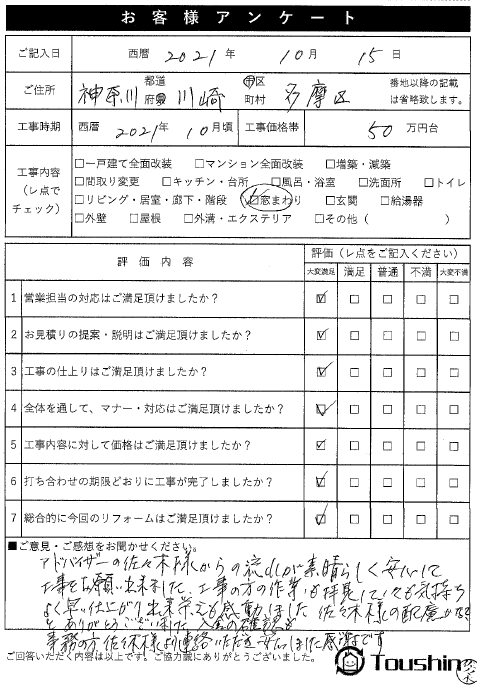 お客様アンケート
ご記入日 西暦 2021 年 10 月 15 日
ご住所 神奈川 都道府県 川崎 市区町村 多摩区 番地以降の記載は省略致します。
工事時期 西暦 2021年 10月頃 工事価格帯 50 万円台
工事内容（レ点でチェック）
□一戸建て全面改装 □マンション全面改装 □増築・減築
□間取り変更 □キッチン・台所 □風呂・浴室 □洗面所 □トイレ
□リビング・居室・廊下・階段 ☑窓まわり □玄関 □給湯器
□外壁 □屋根 □外溝・エクステリア □その他（ ）
評価内容 評価（レ点をご記入ください）
大変満足 満足 普通 不満 大変不満
1 営業担当の対応はご満足頂けましたか？ ☑ □ □ □ □
2 お見積りの提案・説明はご満足頂けましたか？ ☑ □ □ □ □
3 工事の仕上りはご満足頂けましたか？ ☑ □ □ □ □
4 全体を通して、マナー・対応はご満足頂けましたか？ ☑ □ □ □ □
5 工事内容に対して価格はご満足頂けましたか？ ☑ □ □ □ □
6 打ち合わせの期限どおりに工事が完了しましたか？ ☑ □ □ □ □
7 総合的に今回のリフォームはご満足頂けましたか？ ☑ □ □ □ □
■ご意見・ご感想をお聞かせください。
アドバイザーの佐々木様からの流れが素晴らしく安心して
工事をお願い出来ました。工事の方の作業も拝見していても気持ち
よく早い仕上がり 出来栄えも感動しました 佐々木様の配慮かなと
ありがとうございました。入金の確認も
事務の方 佐々木様より連絡いただき 感謝です
ご回答いただく内容は以上です。ご協力誠にありがとうございました。
Toushin